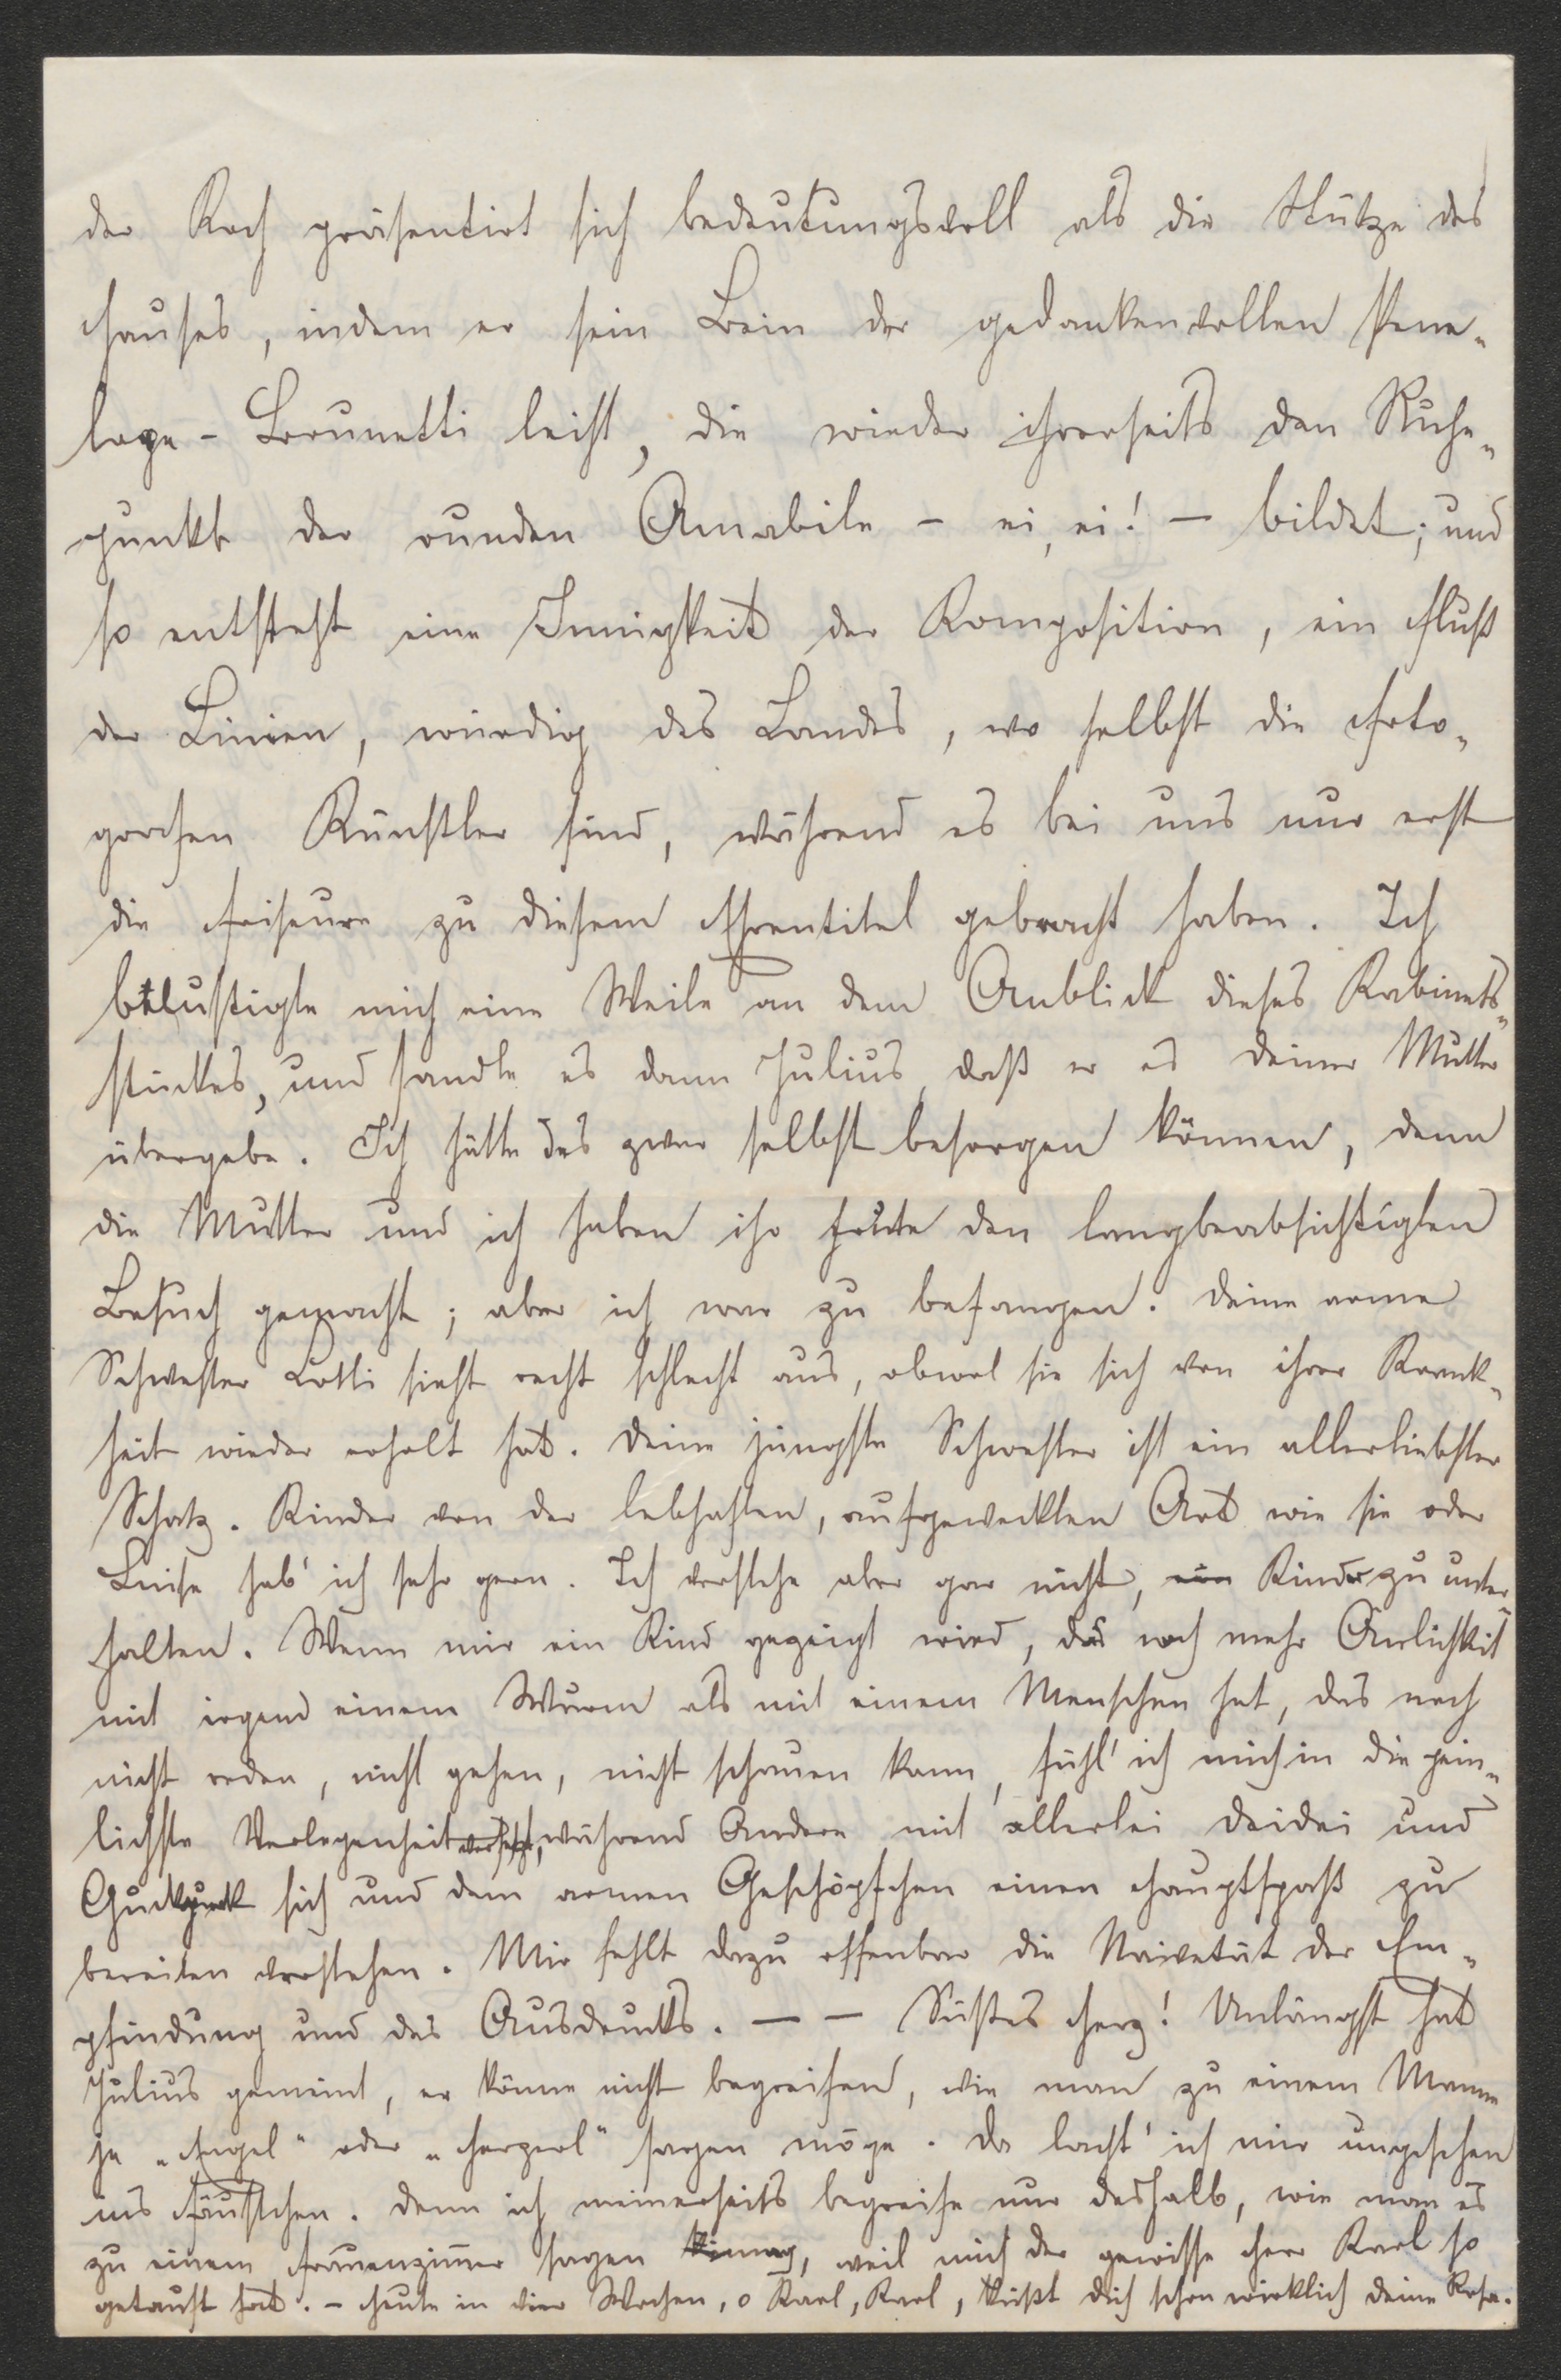 der Koch präsentirt sich bedeutungsvoll als die Stütze des
Hauses, indem er sein Bein der gedankenvollen Pene-
lope-Brunetti leiht, die wieder ihrerseits den Ruhe-
punkt der runden Amabile - ei, ei! - bildet; und
so entsteht eine Innigkeit der Komposition, ein Fluß
der Linien, würdig des Landes, wo selbst die Foto-
grafen Künstler sind, während es bei uns nur erst
die Friseure zu diesem Ehrentitel gebracht haben. Ich
belustigte mich eine Weile an dem Anblick dieses Kabinets-
stückes, und sandte es dann Julius, daß er es Deiner Mutter
übergebe. Ich hätte das zwar selbst besorgen können, denn
die Mutter und ich haben ihr heute den langbeabsichtigten
Besuch gemacht; aber ich war zu befangen. Deine arme
Schwester Lotti sieht recht schlecht aus, obwol sie sich von ihrer Krank-
heit wieder erholt hat. Deine jüngste Schwester ist ein allerliebster
Schatz. Kinder von der lebhaften, aufgeweckten Art wie sie oder
Luise hab' ich sehr gern. Ich verstehe aber gar nicht, ein Kinder zu unter-
halten. Wenn mir ein Kind gezeigt wird, das noch mehr Änlichkeit
mit irgend einem Wurm als mit einem Menschen hat, das noch
nicht reden, nicht gehen, nicht schauen kann, fühl' ich mich in die pein-
lichste Verlegenheit versetzt, während Andere mit allerlei Deidei und
Guckguck sich und dem armen Geschöpfchen einen Hauptspaß zu
bereiten verstehen. Mir fehlt dazu offenbar die Naivetät der Em-
pfindung und des Ausdrucks. — — Süßes Herz! Unlängst hat
Julius gemeint, er könne nicht begreifen, wie man zu einem Manne
je „Engel" oder „Herzerl" sagen möge. Da lacht' ich mir ungesehen
ins Fäustchen. Denn ich meinerseits begreife nur deshalb, wie man es
zu einem Frauenzimmer sagen mag, weil mich der gewisse Herr Karl so
getauft hat. - Heute in vier Wochen, o Karl, Karl, küßt Dich schon wirklich Deine Rosa.